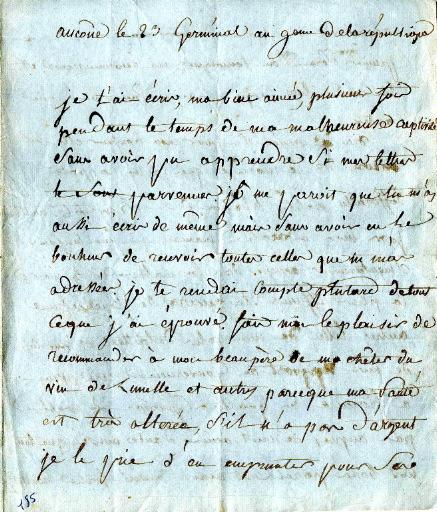 ancone le 23 Germinal an 9eme de la république
je t'ai écris, ma bine aimée, plusieurs fois
pendant le temps de ma malheureuse captivité
sans avoir pu apprendre si mes lettres
te sont parvenues. je me paroit que tu m'as
aussi écris de même mais sans avoir eu le
bonheur de recevoir toutes celles que tu m'as
adressées je te rendrai compte plutard de tout
ceque j'ai éprouvé fais moi le plaisir de
recommander à mon beaupère de m'acheter du
vin de Lunelle et autres parceque ma santé
est très altérée, s'il n'a pas d'argent
je le prie d'en emprunter pour
195